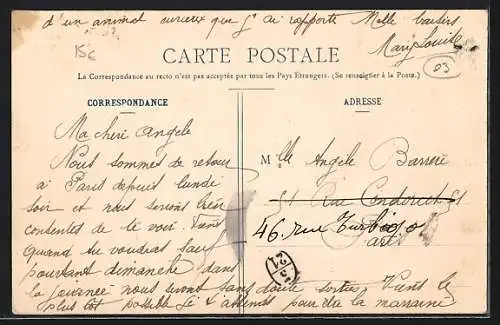 d'un animal curieux que j'ai rapporté Mille baisers
Marie Louise
15€
03
CARTE POSTALE
La Correspondance au recto n'est pas acceptée par tous les Pays Etrangers. (Se renseigner à la Poste.)
CORRESPONDANCE
ADRESSE
Ma cheri Angele
Nous sommes de retour
à Paris depuis lundi
soir et nous serions bien
contentes de te voir. Viens
quand tu voudras sauf
pourtant dimanche dans
la journée nous serons sans doute sorties. Viens le
plus tôt possible je t'attends pour être la marraine
Mlle Angele Barrere
51 Rue Condorcet 51
46. rue Turbigo
Paris